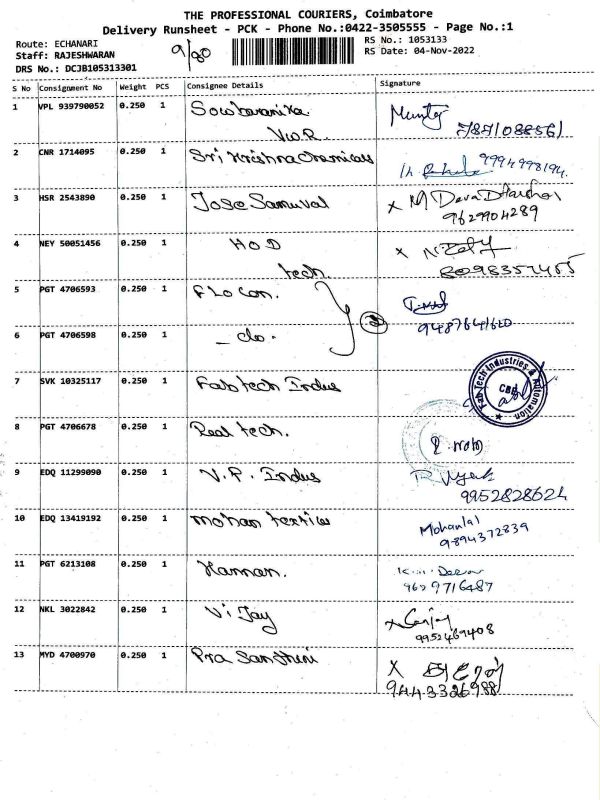 THE PROFESSIONAL COURIERS, Coimbatore
Delivery Runsheet - PCK - Phone No.:0422-3505555 - Page No.:1
Route: ECHANARI
Staff: RAJESHWARAN
DRS No.: DCJB105313301
RS No.: 1053133
RS Date: 04-Nov-2022
S No Consignment No Weight PCS Consignee Details Signature
1 VPL 939790052 0.250 1
V.O.R.
2 CNR 1714095 0.250 1 Sri Krishna Chemicals 9994998194.
3 HSR 2543890 0.250 1 Jose Samuval x M Deva Dharshan
9629904289
4 NEY 50051456 0.250 1 HOD x
tech 8098357455
5 PGT 4706593 0.250 1 Flocon.
9487641620
6 PGT 4706598 0.250 1 - do -
7 SVK 10325117 0.250 1 Fabtech Indus Fab Tech Industries & Automation CBE
8 PGT 4706678 0.250 1 Real tech.
9 EDQ 11299090 0.250 1 V.P. Indus
9952828624
10 EDQ 13419192 0.250 1 mohan textiles Mohanlal
9894372839
11 PGT 6213108 0.250 1 Kannan.
9629716487
12 NKL 3022842 0.250 1 Vijay x Sanjay
9952469408
13 MYD 4700970 0.250 1 Pra Santhini x
9443326988